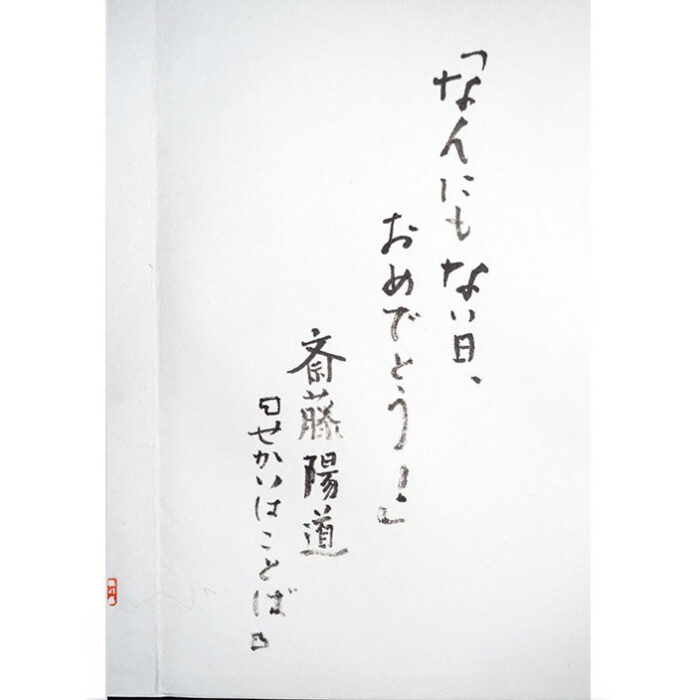 「なんにもない日、
おめでとう！」
斎藤陽道
『せかいはことば』